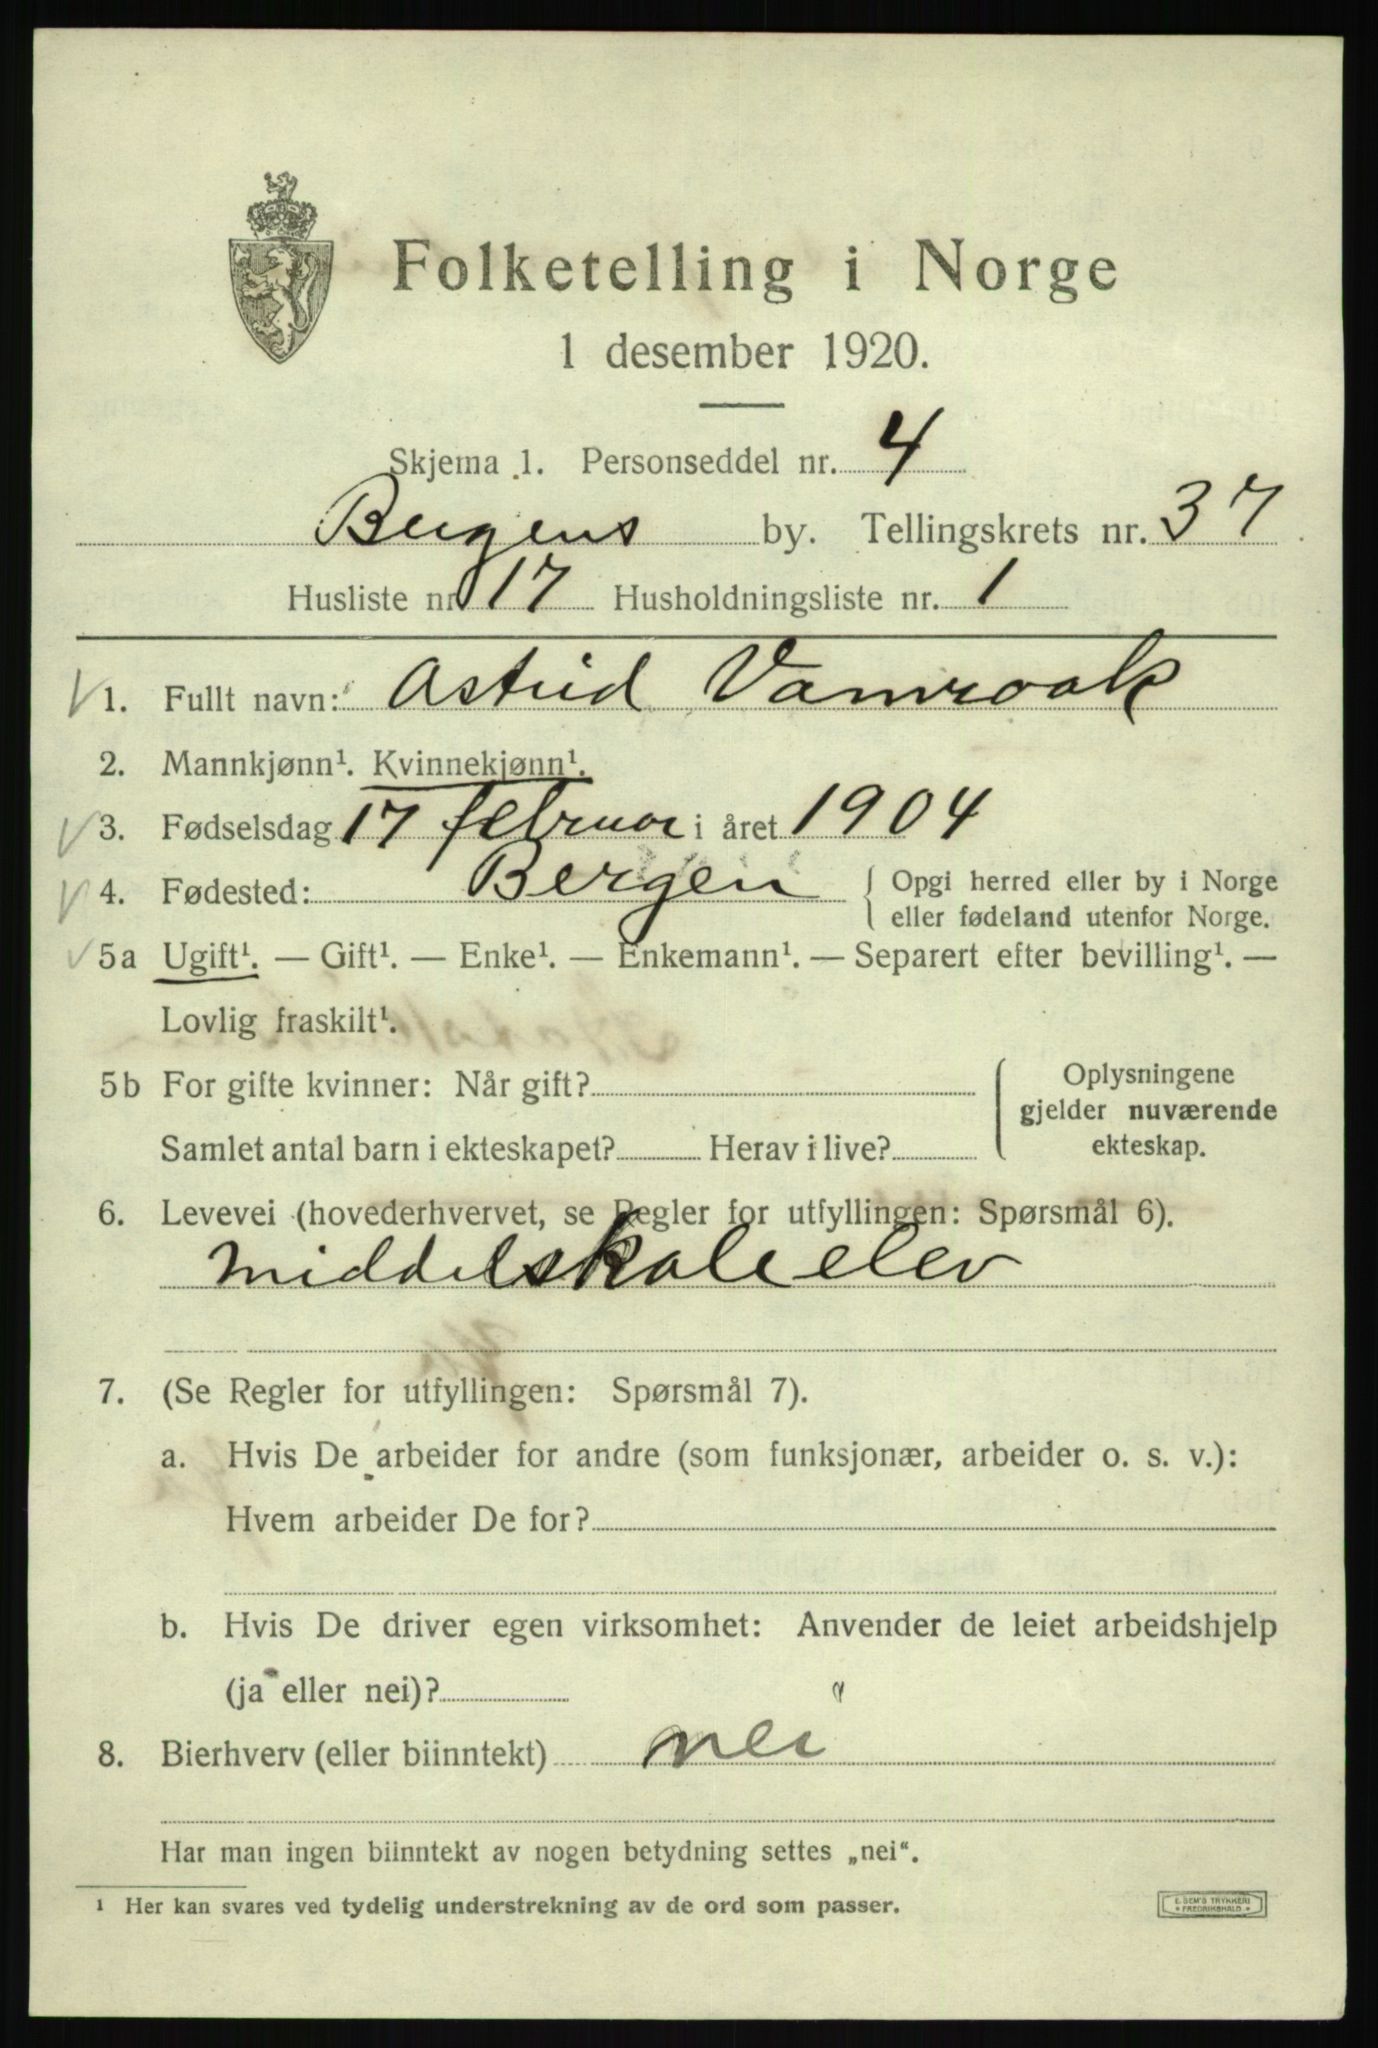 Folketelling i Norge
1 desember 1920.
Skjema 1. Personseddel nr. 4
Bergens by. Tellingskrets nr. 37
Husliste nr. 17 Husholdningsliste nr. 1
1. Fullt navn: Astrid Vamraak
2. Mannkjønn¹. Kvinnekjønn¹.
3. Fødselsdag 17 februar i året 1904
4. Fødested: Bergen { Opgi herred eller by i Norge
eller fødeland utenfor Norge.
5a Ugift¹. — Gift¹. — Enke¹. — Enkemann¹. — Separert efter bevilling¹. —
Lovlig fraskilt¹.
5b For gifte kvinner: Når gift? { Oplysningene
gjelder nuværende
Samlet antal barn i ekteskapet? Herav i live? ekteskap.
6. Levevei (hovederhvervet, se Regler for utfyllingen: Spørsmål 6).
Middelskoleelev
7. (Se Regler for utfyllingen: Spørsmål 7).
a. Hvis De arbeider for andre (som funksjonær, arbeider o. s. v.):
Hvem arbeider De for?
b. Hvis De driver egen virksomhet: Anvender de leiet arbeidshjelp
(ja eller nei)?
8. Bierhverv (eller biinntekt) nei
Har man ingen biinntekt av nogen betydning settes „nei“.
¹ Her kan svares ved tydelig understrekning av de ord som passer.
E. SEM'S TRYKKERI
FREDRIKSHALD